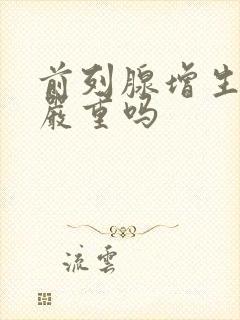 前列腺增生
严重吗
流雲